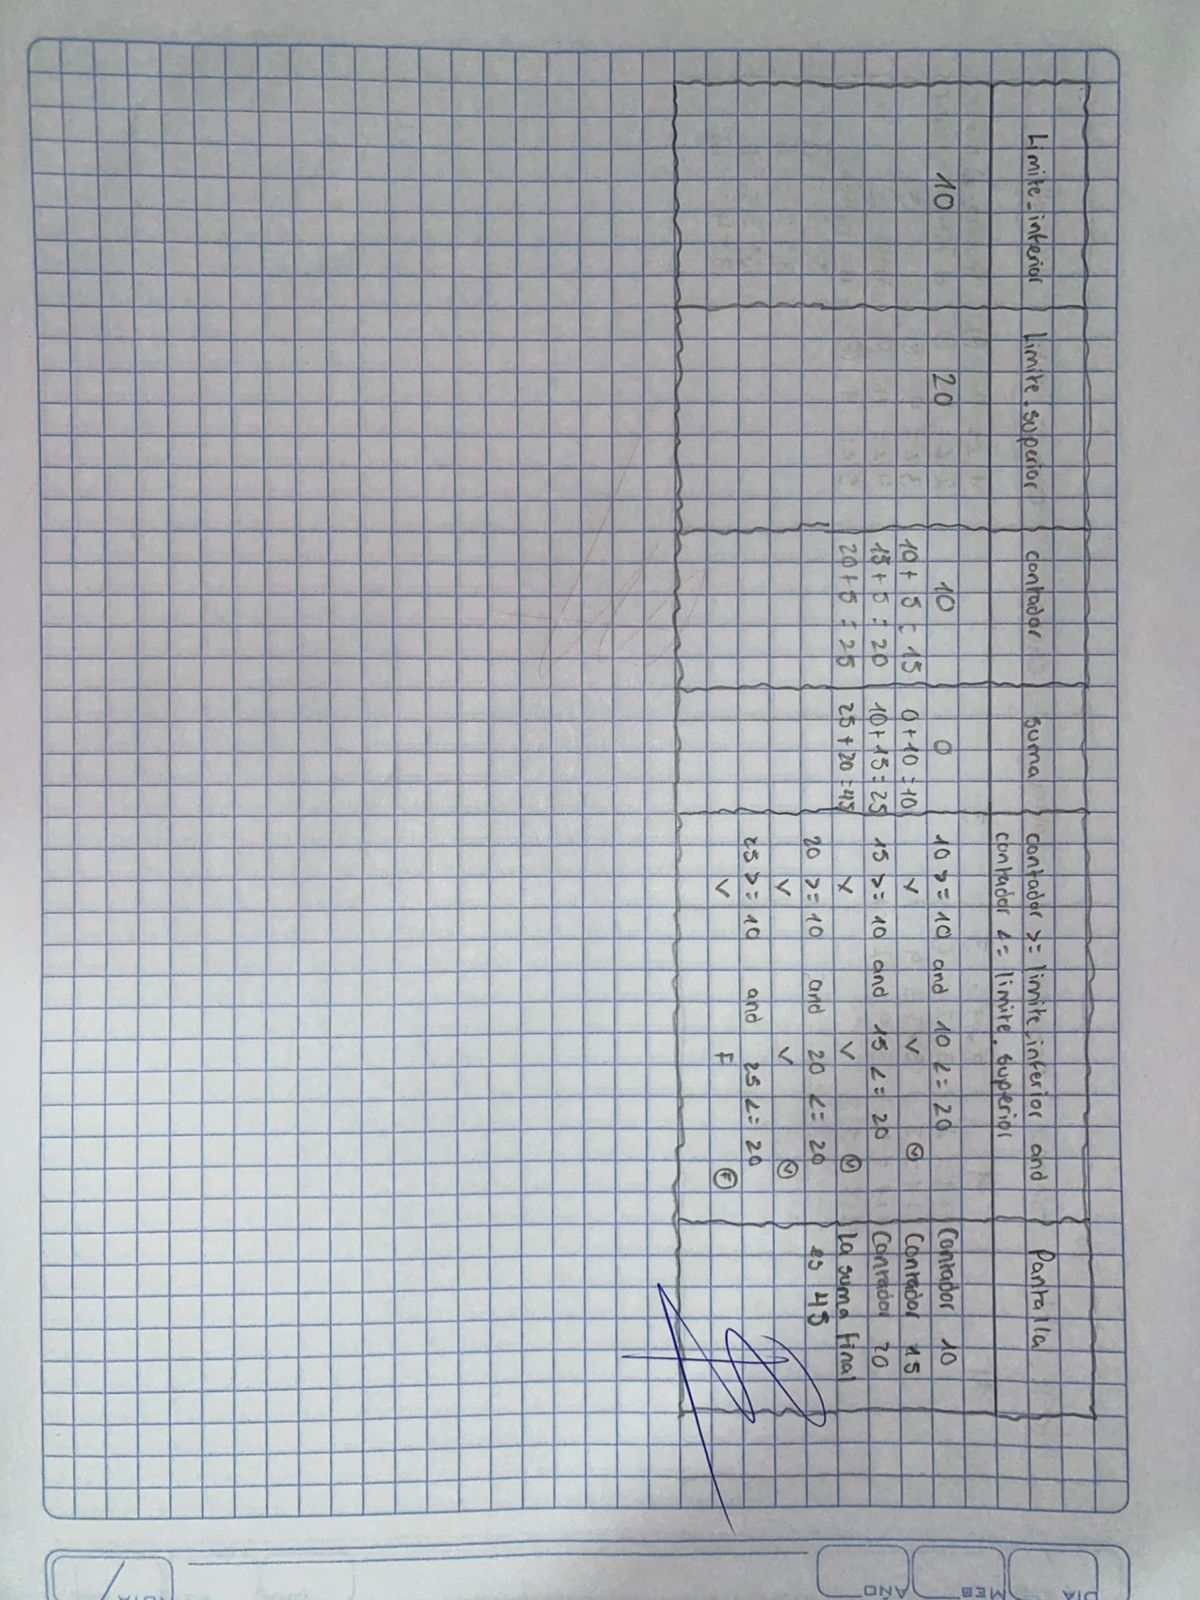 Limite_inferior Limite_superior contador suma contador >= limite_inferior and Pantalla
contador <= limite_superior
10 20 10 0 10 >= 10 and 10 <= 20 Contador 10
10 + 5 = 15 0 + 10 = 10 V V V Contador 15
15 + 5 = 20 10 + 15 = 25 15 >= 10 and 15 <= 20 Contador 20
20 + 5 = 25 25 + 20 = 45 V V V La suma final
20 >= 10 and 20 <= 20 es 45
V V V
25 >= 10 and 25 <= 20
V F F
DIA MES AÑO